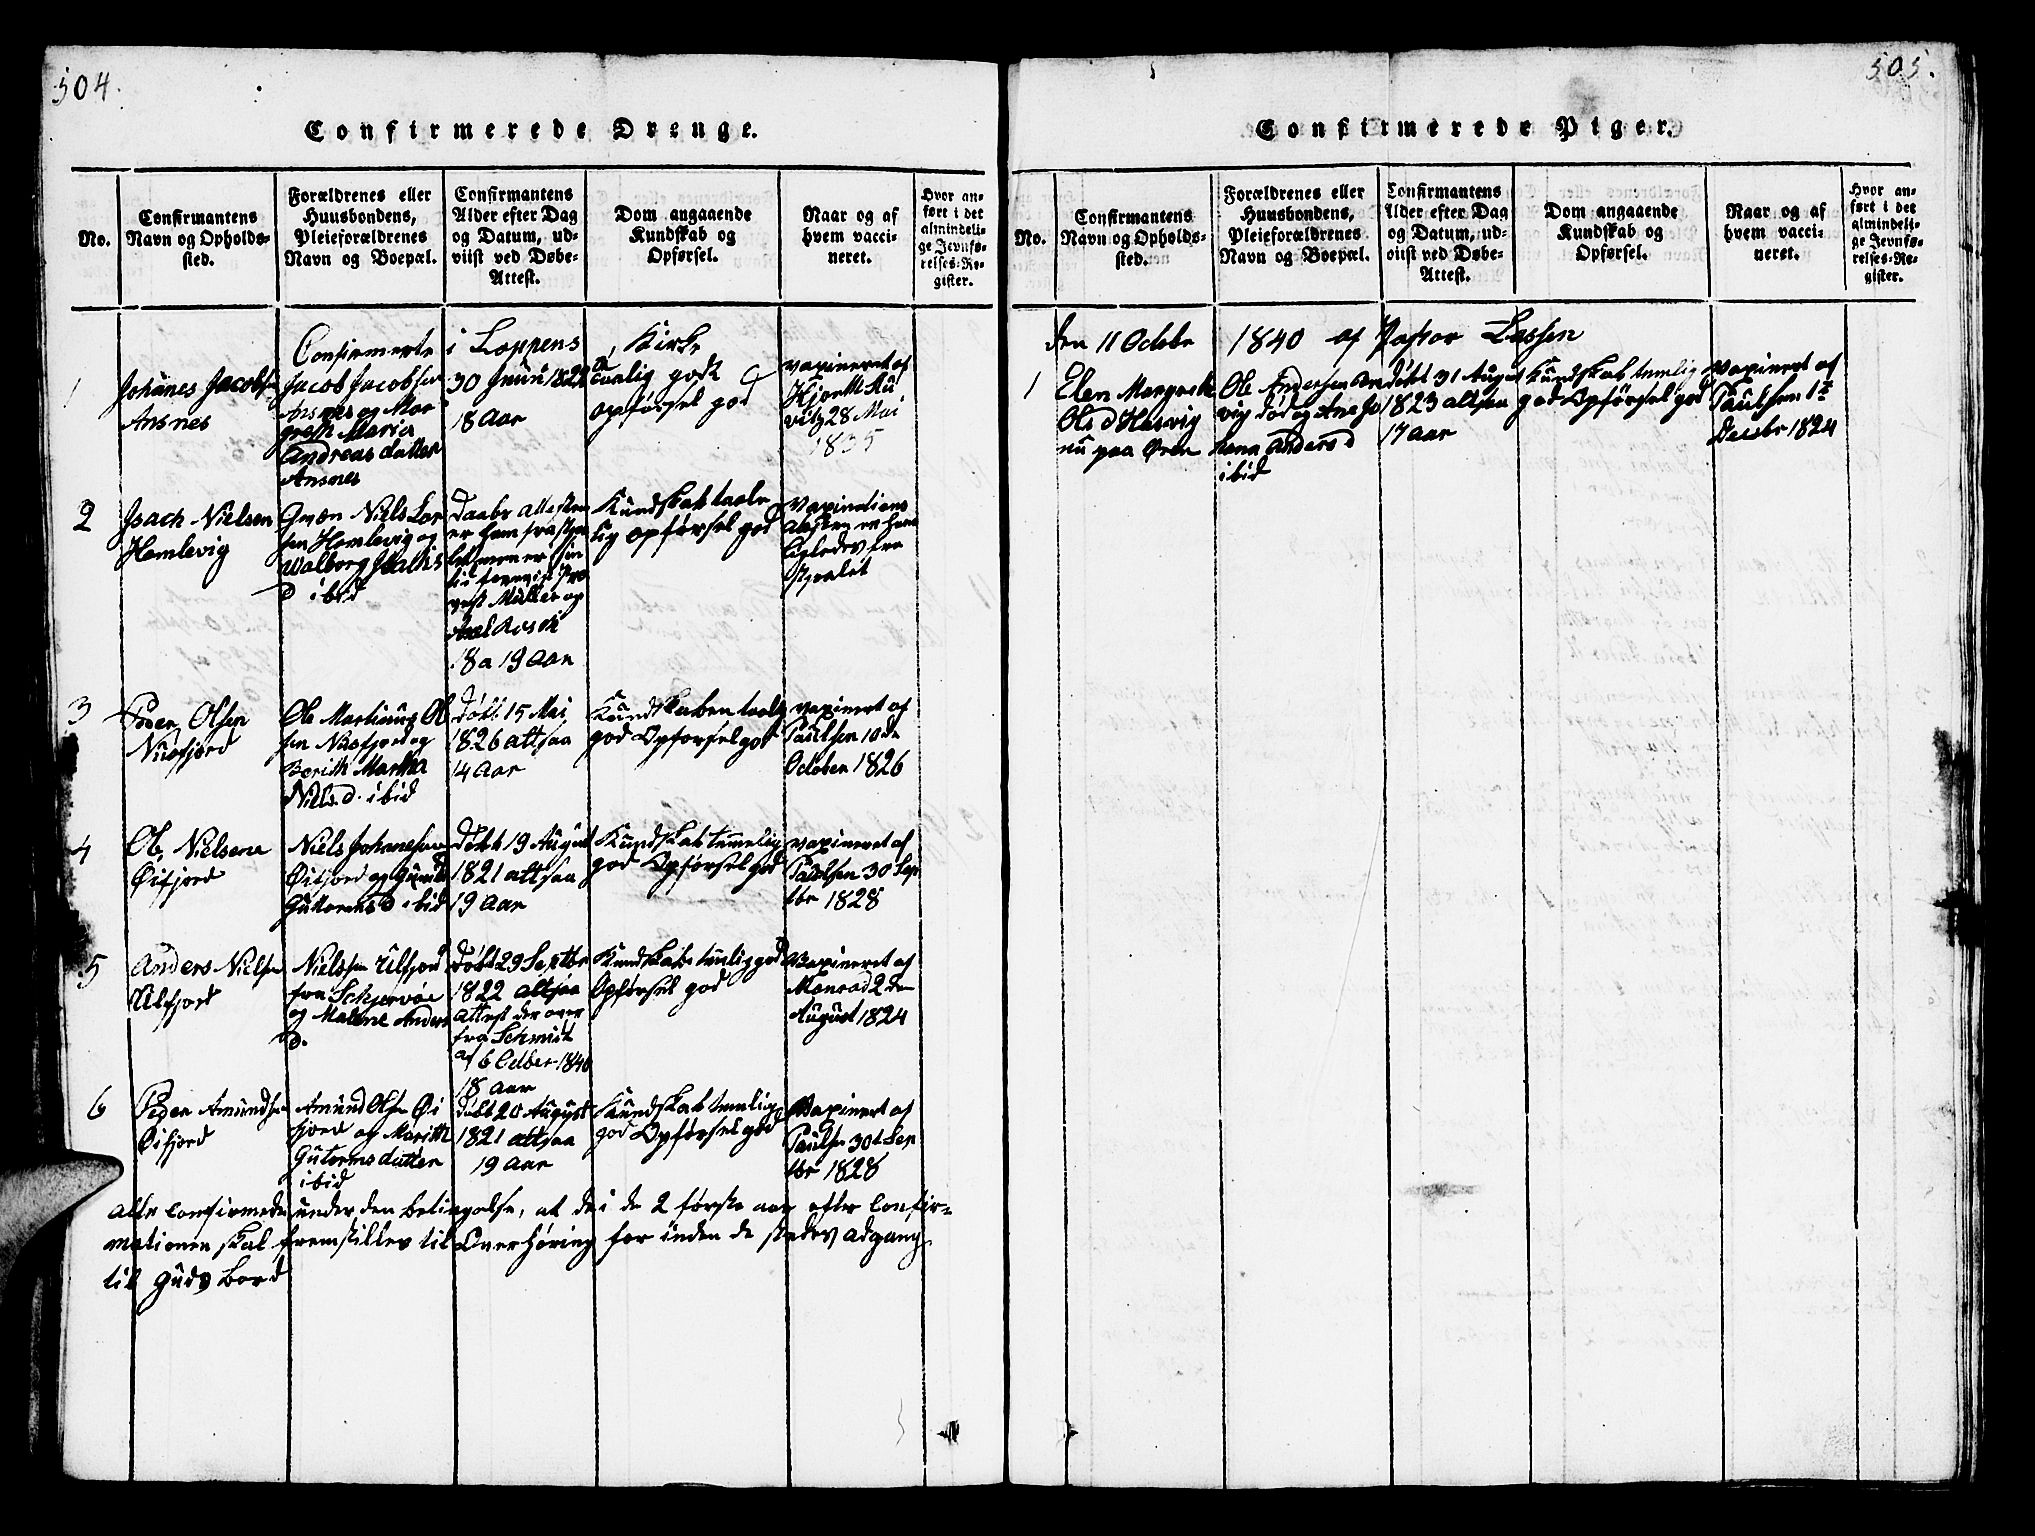 504.
Confirmerede Drenge.
No.
Confirmantens
Navn og Opholds-
sted.
Forældrenes eller
Huusbondens,
Pleieforældrenes
Navn og Boepæl.
Confirmantens
Alder efter Dag
og Datum, ud-
viist ved Døbe-
Attest.
Dom angaaende
Kundskab og
Opførsel.
Naar og af
hvem vacci-
neret.
Hvor an-
ført i det
almindeli-
ge Jevnfø-
relses-Re-
gister.
Confirmerte i Loppens Kirke
1
Johanes Jacobsen
Ansnes
Jacob Jacobsen
Ansnes og Mar
greth Maria
Andreasdatter
Ansnes
30 Junii 1822
18 Aar
godt
opførsel god
vaxineret af
28 Mai
1835
2
Isach Nielsen
Hemlevig
Niels Lar
sen Hemlevig og
Walborg Isachs
D ibid
Daabs attesten
er
Müller og
18 a 19 Aar
Kundskab taale
lig opførsel god
vaxinations
ligeledes fra
3
Peder Olsen
Nusfjord
Ole Martinus Ol
sen Nusfjord og
Berith Martha
Niels D. ibid
døbt 15 Mai
1826 altsaa
14 Aar
Kundskaben taalig
god Opførsel god
vaxineret af
Paulsen 10de
October 1826
4
Ole Nielsen
Øifjord
Niels Johanesen
Øifjord og
Guttormsd ibid
Døbt 19 August
1821 altsaa
19 Aar
Kundskab temmelig
god Opførsel god
vaxineret af
Paulsen 30 Sep
tbr 1828
5
Anders Nielsen
Ulfjord
Nielssen Ulfjord
fra Schjervøe
og Malene Anders
D.
døbt 29 Septbr
1822 altsaa
attest der over
fra Schmidt
af 6 Octber 1840
18 Aar
Kundskab temlig god
Opførsel god
Vaxineret af
Monrad 2den
August 1824
6
Peder Amundsen
Øifjord
Amund Olsen Øi
fjord og Marith
Gutormsdatter
ibid
døbt 20 August
1821 altsaa
19 Aar
Kundskab temlig
god Opførsel god
Vaxinert af
Paulsen 30t Sep
tbr 1828
alle confirmede under den betingelse, at de i de 2 første aar efter Confir-
mationen skal fremstilles til Overhøring for inden de stedes adgang
til Guds Bord
505.
Confirmerede Piger.
No.
Confirmantens
Navn og Opholds-
sted.
Forældrenes eller
Huusbondens,
Pleieforældrenes
Navn og Boepæl.
Confirmantens
Alder efter Dag
og Datum, ud-
viist ved Døbe-
Attest.
Dom angaaende
Kundskab og
Opførsel.
Naar og af
hvem vacci-
neret.
Hvor an-
ført i det
almindeli-
ge Jevnfø-
relses-Re-
gister.
den 11 Octobr 1840 af Pastor Lassen
1
Elen Margreth
Ols d Hasvig
nu paa Øren
Ole Andersen
vig død og Ane Jo
hana Anders D
ibid
døbt 31 August
1823 altsaa
17 Aar
Kundskab temlig
god Opførsel god
Vaxineret af
Paulsen 1te
Decbr 1824